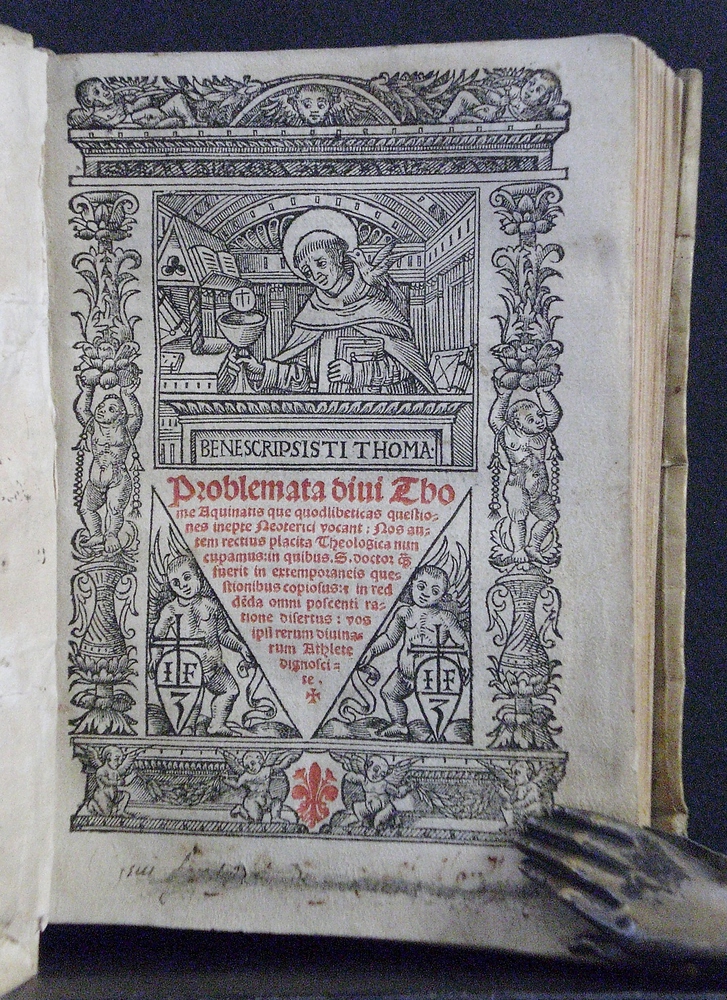 BENE SCRIPSISTI THOMA·
Problemata diui Tho
me Aquinatis que quodlibeticas questio⸗
nes inepte Neoterici vocant : Nos au⸗
tem rectius placita Theologica nun
cupamus: in quibus. S. doctor q̃
fuerit in extemporaneis que⸗
stionibus copiosus: ⁊ in red
dēda omni poscenti ra⸗
tione disertus : vos
ipsi rerum diuina⸗
rum Athlete
dignosci⸗
te .
I F
3
I F
3